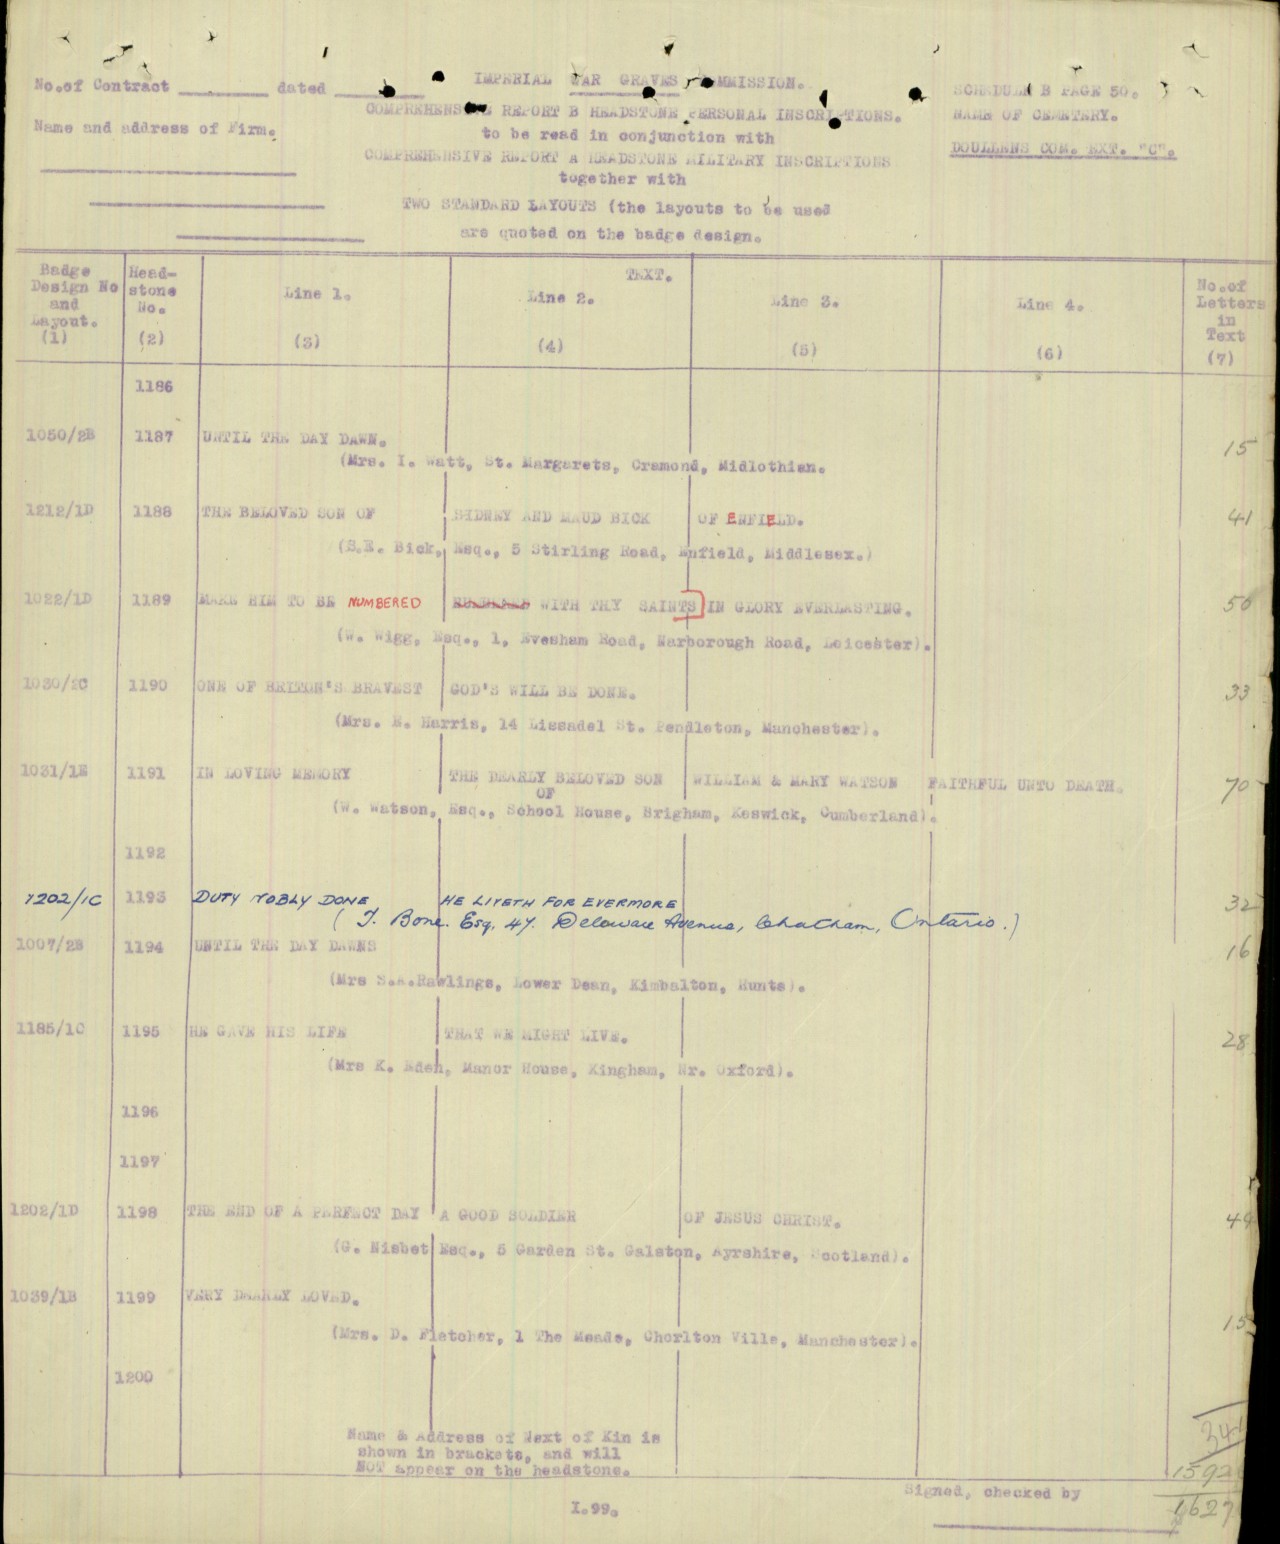 No.of Contract dated
Name and address of Firm.
IMPERIAL WAR GRAVES COMMISSION.
COMPREHENSIVE REPORT B HEADSTONE PERSONAL INSCRIPTIONS.
to be read in conjunction with
COMPREHENSIVE REPORT A HEADSTONE MILITARY INSCRIPTIONS
together with
TWO STANDARD LAYOUTS (the layouts to be used
are quoted on the badge design.
SCHEDULE B PAGE 50.
NAME OF CEMETERY.
DOULLENS COM. EXT. "C".
Badge Design No and Layout. (1)
Head-stone No. (2)
TEXT.
Line 1. (3)
Line 2. (4)
Line 3. (5)
Line 4. (6)
No.of Letters in Text (7)
1186
1050/2B 1187 UNTIL THE DAY DAWN. 15
(Mrs. I. Watt, St. Margarets, Cramond, Midlothian.
1212/1D 1188 THE BELOVED SON OF SIDNEY AND MAUD BICK OF ENFIELD. 41
(S.E. Bick, Esq., 5 Stirling Road, Enfield, Middlesex.)
1022/1D 1189 MAKE HIM TO BE NUMBERED WITH THY SAINTS IN GLORY EVERLASTING. 50
(W. Wigg, Esq., 1, Evesham Road, Narborough Road, Leicester).
1030/2C 1190 ONE OF BRITON'S BRAVEST GOD'S WILL BE DONE. 33
(Mrs. E. Harris, 14 Lissadel St. Pendleton, Manchester).
1031/1E 1191 IN LOVING MEMORY THE DEARLY BELOVED SON WILLIAM & MARY WATSON FAITHFUL UNTO DEATH. 70
OF
(W. Watson, Esq., School House, Brigham, Keswick, Cumberland).
1192
1202/1C 1193 DUTY NOBLY DONE HE LIVETH FOR EVERMORE 32
(T. Bone. Esq. 47. Delaware Avenue, Chatham, Ontario.)
1007/2B 1194 UNTIL THE DAY DAWNS 16
(Mrs S.A.Rawlings, Lower Dean, Kimbalton, Hunts).
1185/1C 1195 HE GAVE HIS LIFE THAT WE MIGHT LIVE. 28
(Mrs K. Eden, Manor House, Kingham, Nr. Oxford).
1196
1197
1202/1D 1198 THE END OF A PERFECT DAY A GOOD SOLDIER OF JESUS CHRIST.
(G. Nisbet Esq., 5 Garden St. Galston, Ayrshire, Scotland).
1039/1B 1199 VERY DEARLY LOVED. 15
(Mrs. D. Fletcher, 1 The Meads, Chorlton Ville, Manchester).
1200
Name & Address of Next of Kin is
shown in brackets, and will
NOT appear on the headstone.
Signed, checked by
I.99.